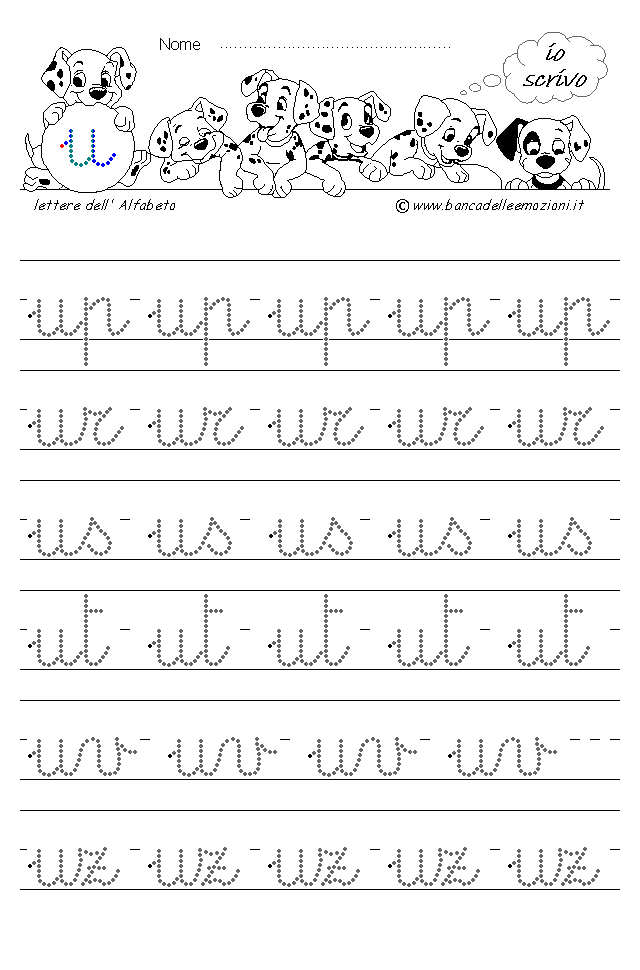 Nome ..........................................
io
scrivo
u
lettere dell' Alfabeto
© www.bancadelleemozioni.it
up up up up up
ur ur ur ur ur
us us us us us
ut ut ut ut ut
uv uv uv uv
uz uz uz uz uz